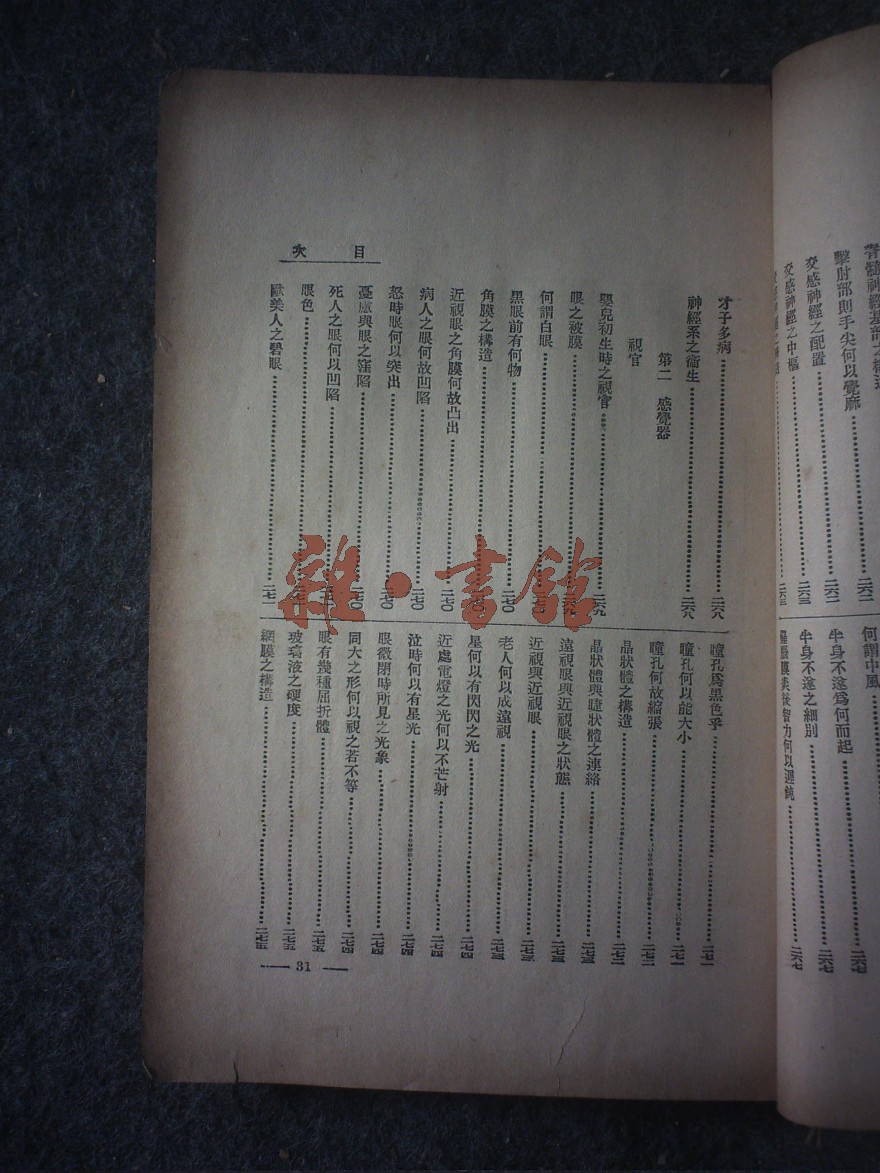 脊髓神經
擊肘部則手尖何以覺麻……二六二
交感神經之配置……二六二
交感神經之中樞……二六三
何謂中風……二六七
半身不遂爲何而起……二六七
半身不遂之細別……二六七
力何以遲鈍
目次
才子多病……二六八
神經系之衞生……二六八
第二 感覺器
視官
嬰兒初生時之視官……二六九
眼之被膜……二六九
何謂白眼
黑眼前有何物……二七〇
角膜之構造……二七〇
近視眼之角膜何故凸出……二七〇
病人之眼何故凹陷……二七〇
怒時眼何以突出……二七〇
憂慮與眼之窪陷……二七〇
死人之眼何以凹陷
眼色
歐美人之碧眼……二七一
瞳孔爲黑色乎……二七一
瞳孔何以能大小……二七一
瞳孔何故縮張……二七二
晶狀體之構造……二七二
晶狀體與睫狀體之連絡……二七三
遠視眼與近視眼之狀態……二七三
近視與近視眼……二七三
老人何以成遠視……二七三
星何以有閃閃之光……二七四
近處電燈之光何以不芒射……二七四
泣時何以有星光……二七四
眼微閉時所見之光象……二七四
同大之形何以視之若不等……二七四
眼有幾種屈折體……二七五
玻璃液之硬度……二七五
網膜之構造……二七五
31
雜·書館